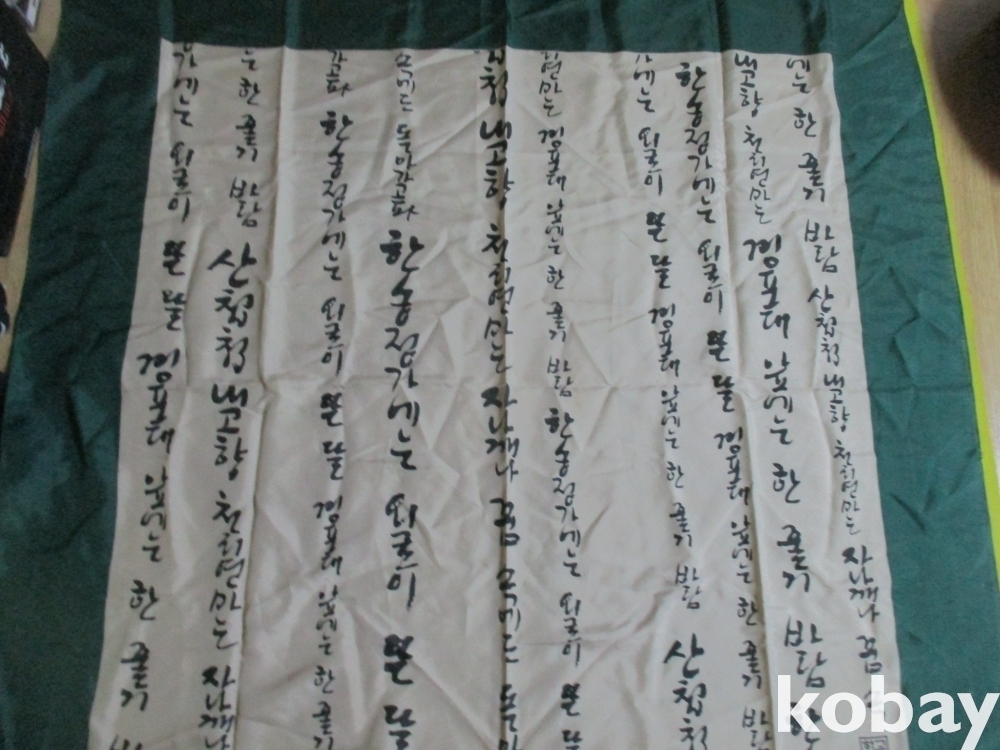 에는 한 줄기 바람 산첩첩 내고향 천리연마는 자나깨나 꿈 속
내고향 천리연마는 경포대 앞에는 한 줄기 바람 산
한송정가에는 외로이 뜬 달 경포대 앞에는 한 줄기 바람
가에는 외로이 뜬 달 경포대 앞에는 한 줄기 바람 산첩첩
리연마는 경포대 앞에는 한 줄기 바람 한송정가에는 외로이 뜬 달
첩 내고향 천리연마는 자나깨나 꿈 속에도 돌아
속에도 돌아가고파 한송정가에는 외로이 뜬 달
가고파 한송정가에는 외로이 뜬 달 경포대 앞에는 한 줄기
는 한 줄기 바람 산첩첩 내고향 천리연마는 자나깨나
가에는 외로이 뜬 달 경포대 앞에는 한 줄기 바
kobay